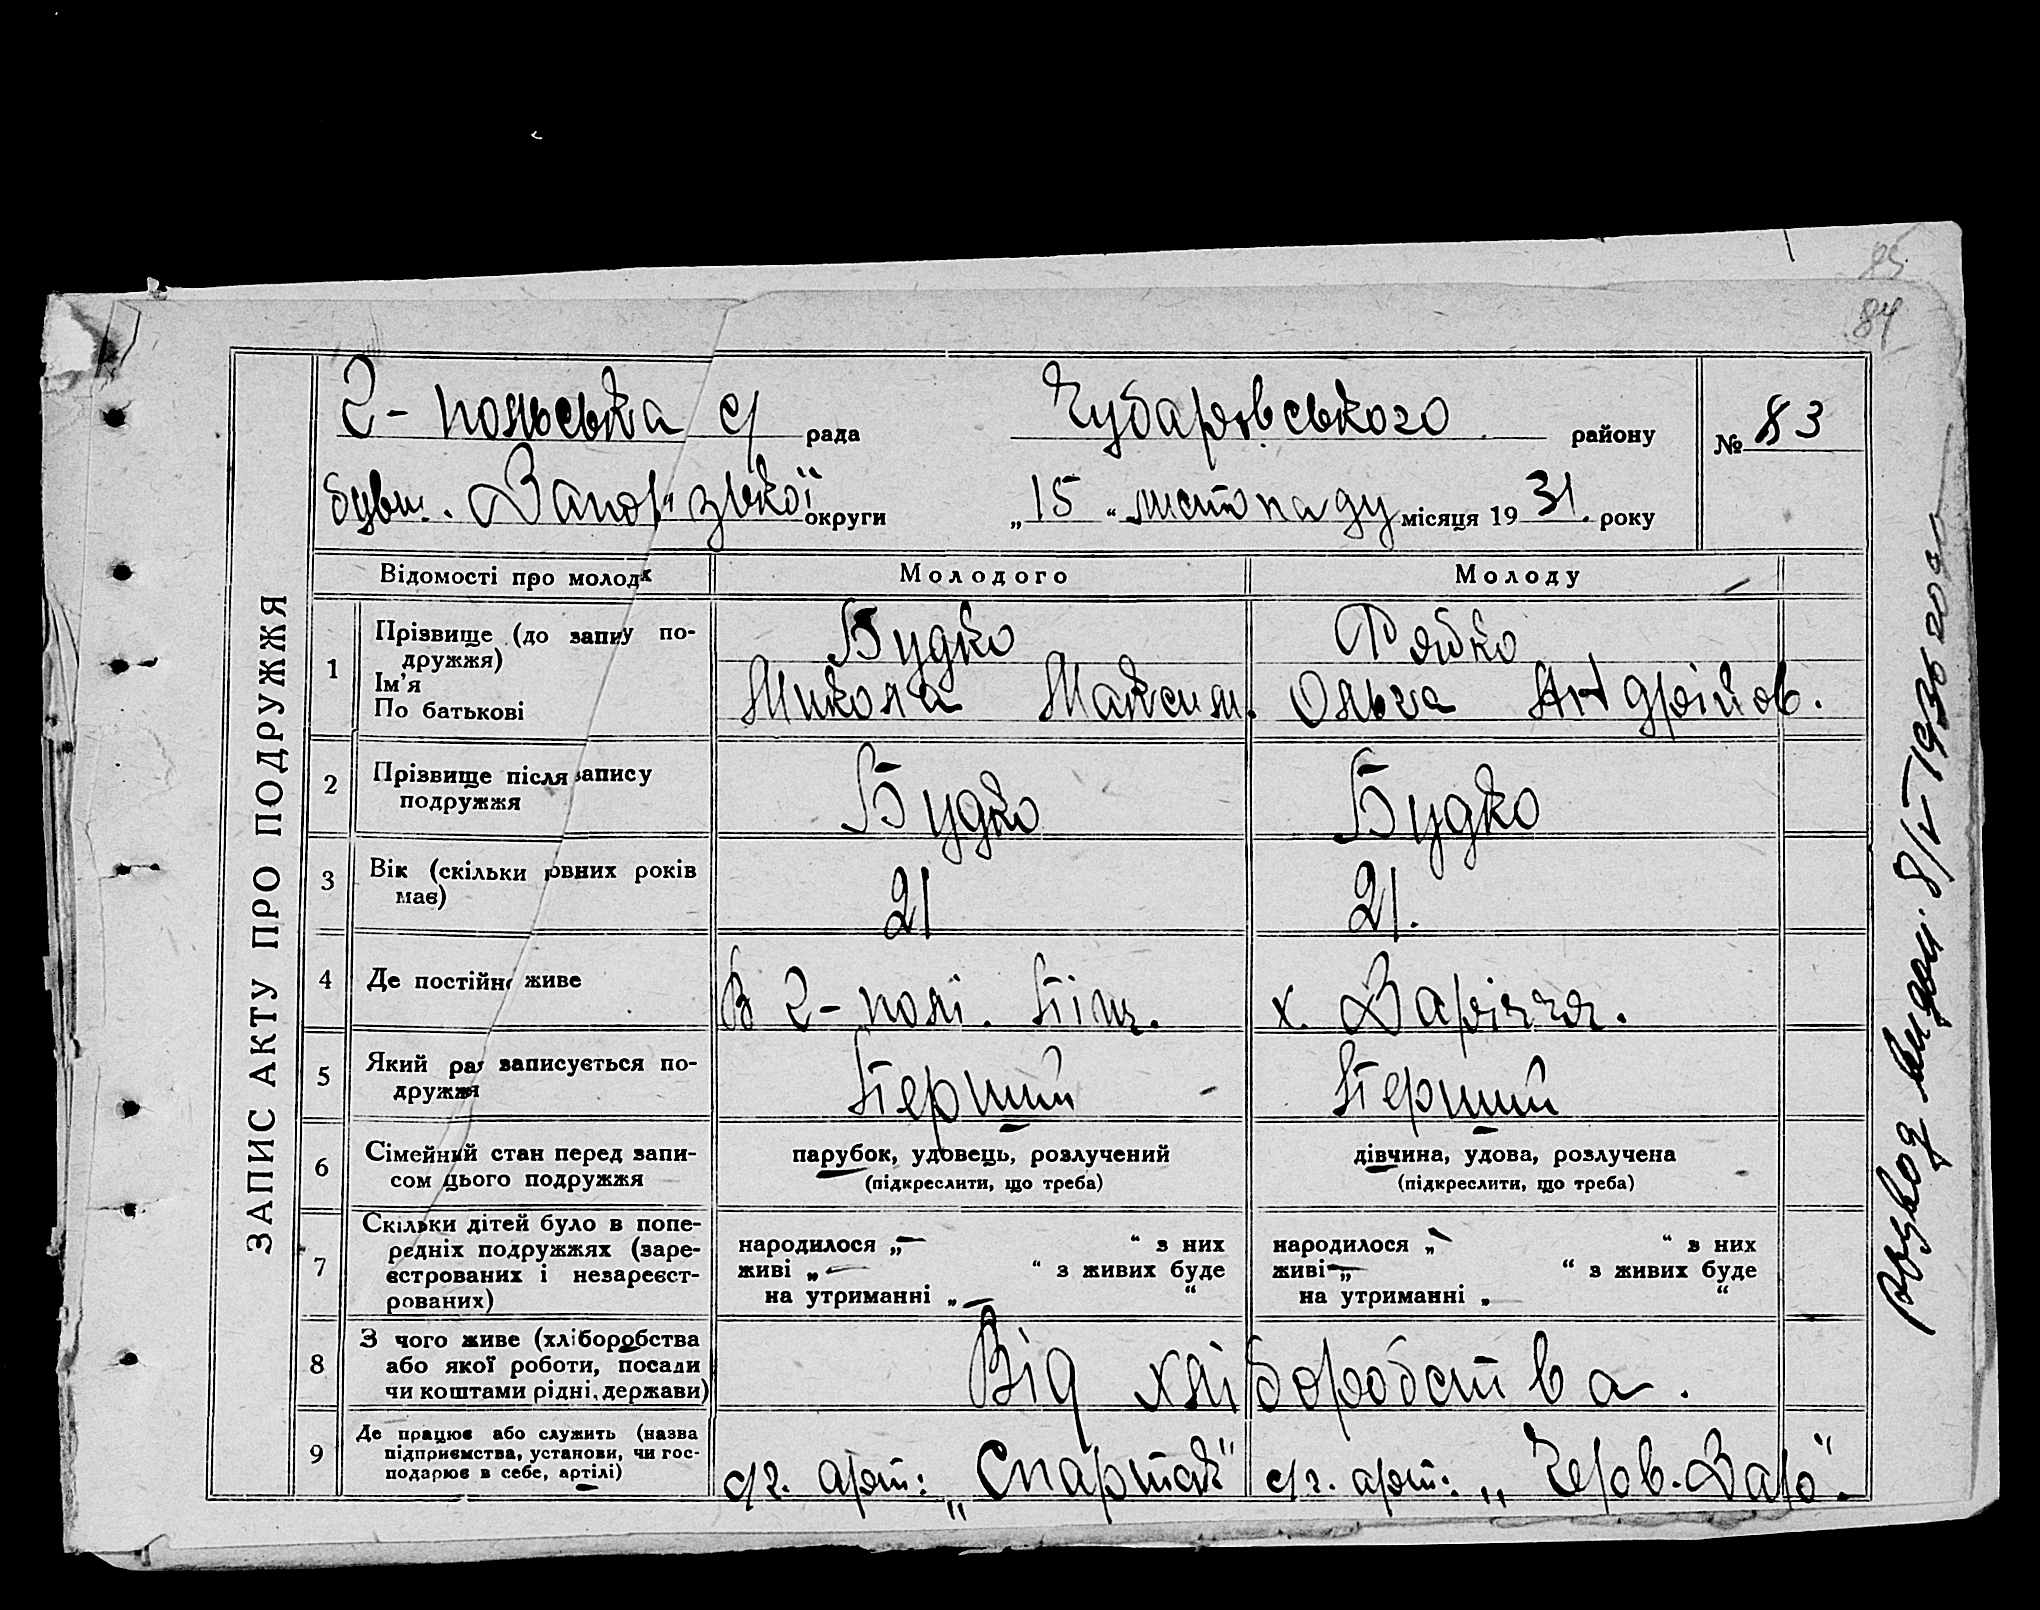 85
84
ЗАПИС АКТУ ПРО ПОДРУЖЖЯ
2-польська с/ рада Чубарівського району № 83
бувш. Запорізької округи „15“ листопаду місяця 1931. року
Відомості про молодих Молодого Молоду
1 Прізвище (до запису по- Будко Рябко
дружжя)
Ім'я Микола Максим. Ольга Андрійов.
По батькові
2 Прізвище після запису Будко Будко
подружжя
3 Вік (скільки повних років 21 21.
має)
4 Де постійно живе В 2-полі. х. Заріччя.
5 Який раз записується по- Перший Перший
дружжя
6 Сімейний стан перед запи- парубок, удовець, розлучений дівчина, удова, розлучена
сом цього подружжя (підкреслити, що треба) (підкреслити, що треба)
7 Скільки дітей було в попе-
редніх подружжях (заре- народилося „—“ з них народилося „—“ з них
єстрованих і незареєст- живі „—“ з живих буде живі „—“ з живих буде
рованих) на утриманні „—“ на утриманні „ “
8 З чого живе (хліборобства Від хліборобства.
або якої роботи, посади
чи коштами рідні, держави)
9 Де працює або служить (назва с/г. арт: „Спартак“ с/г. арт: „Черв. Заря“.
підприємства, установи, чи гос-
подарює в себе, артілі)
Розвод 8/V-1935 года